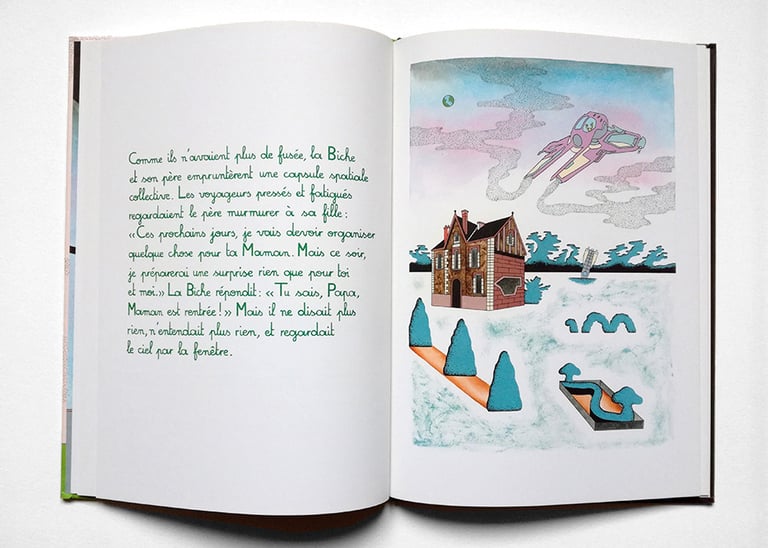 Comme ils n'avaient plus de fusée, la Biche
et son père empruntèrent une capsule spatiale
collective. Les voyageurs pressés et fatigués
regardaient le père murmurer à sa fille :
«Ces prochains jours, je vais devoir organiser
quelque chose pour ta Maman. Mais ce soir,
je préparerai une surprise rien que pour toi
et moi.» La Biche répondit : « Tu sais, Papa,
Maman est rentrée ! » Mais il ne disait plus
rien, n'entendait plus rien, et regardait
le ciel par la fenêtre.